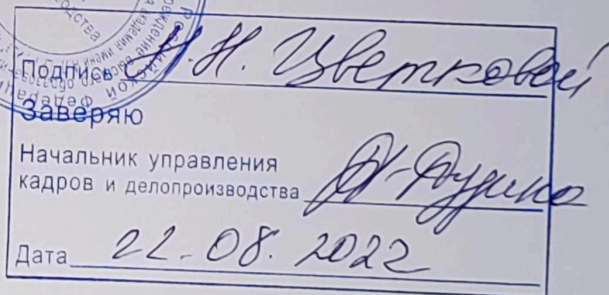 Подпись Н.Н. Цветковой
Заверяю
Начальник управления
кадров и делопроизводства
Дата 22.08.2022